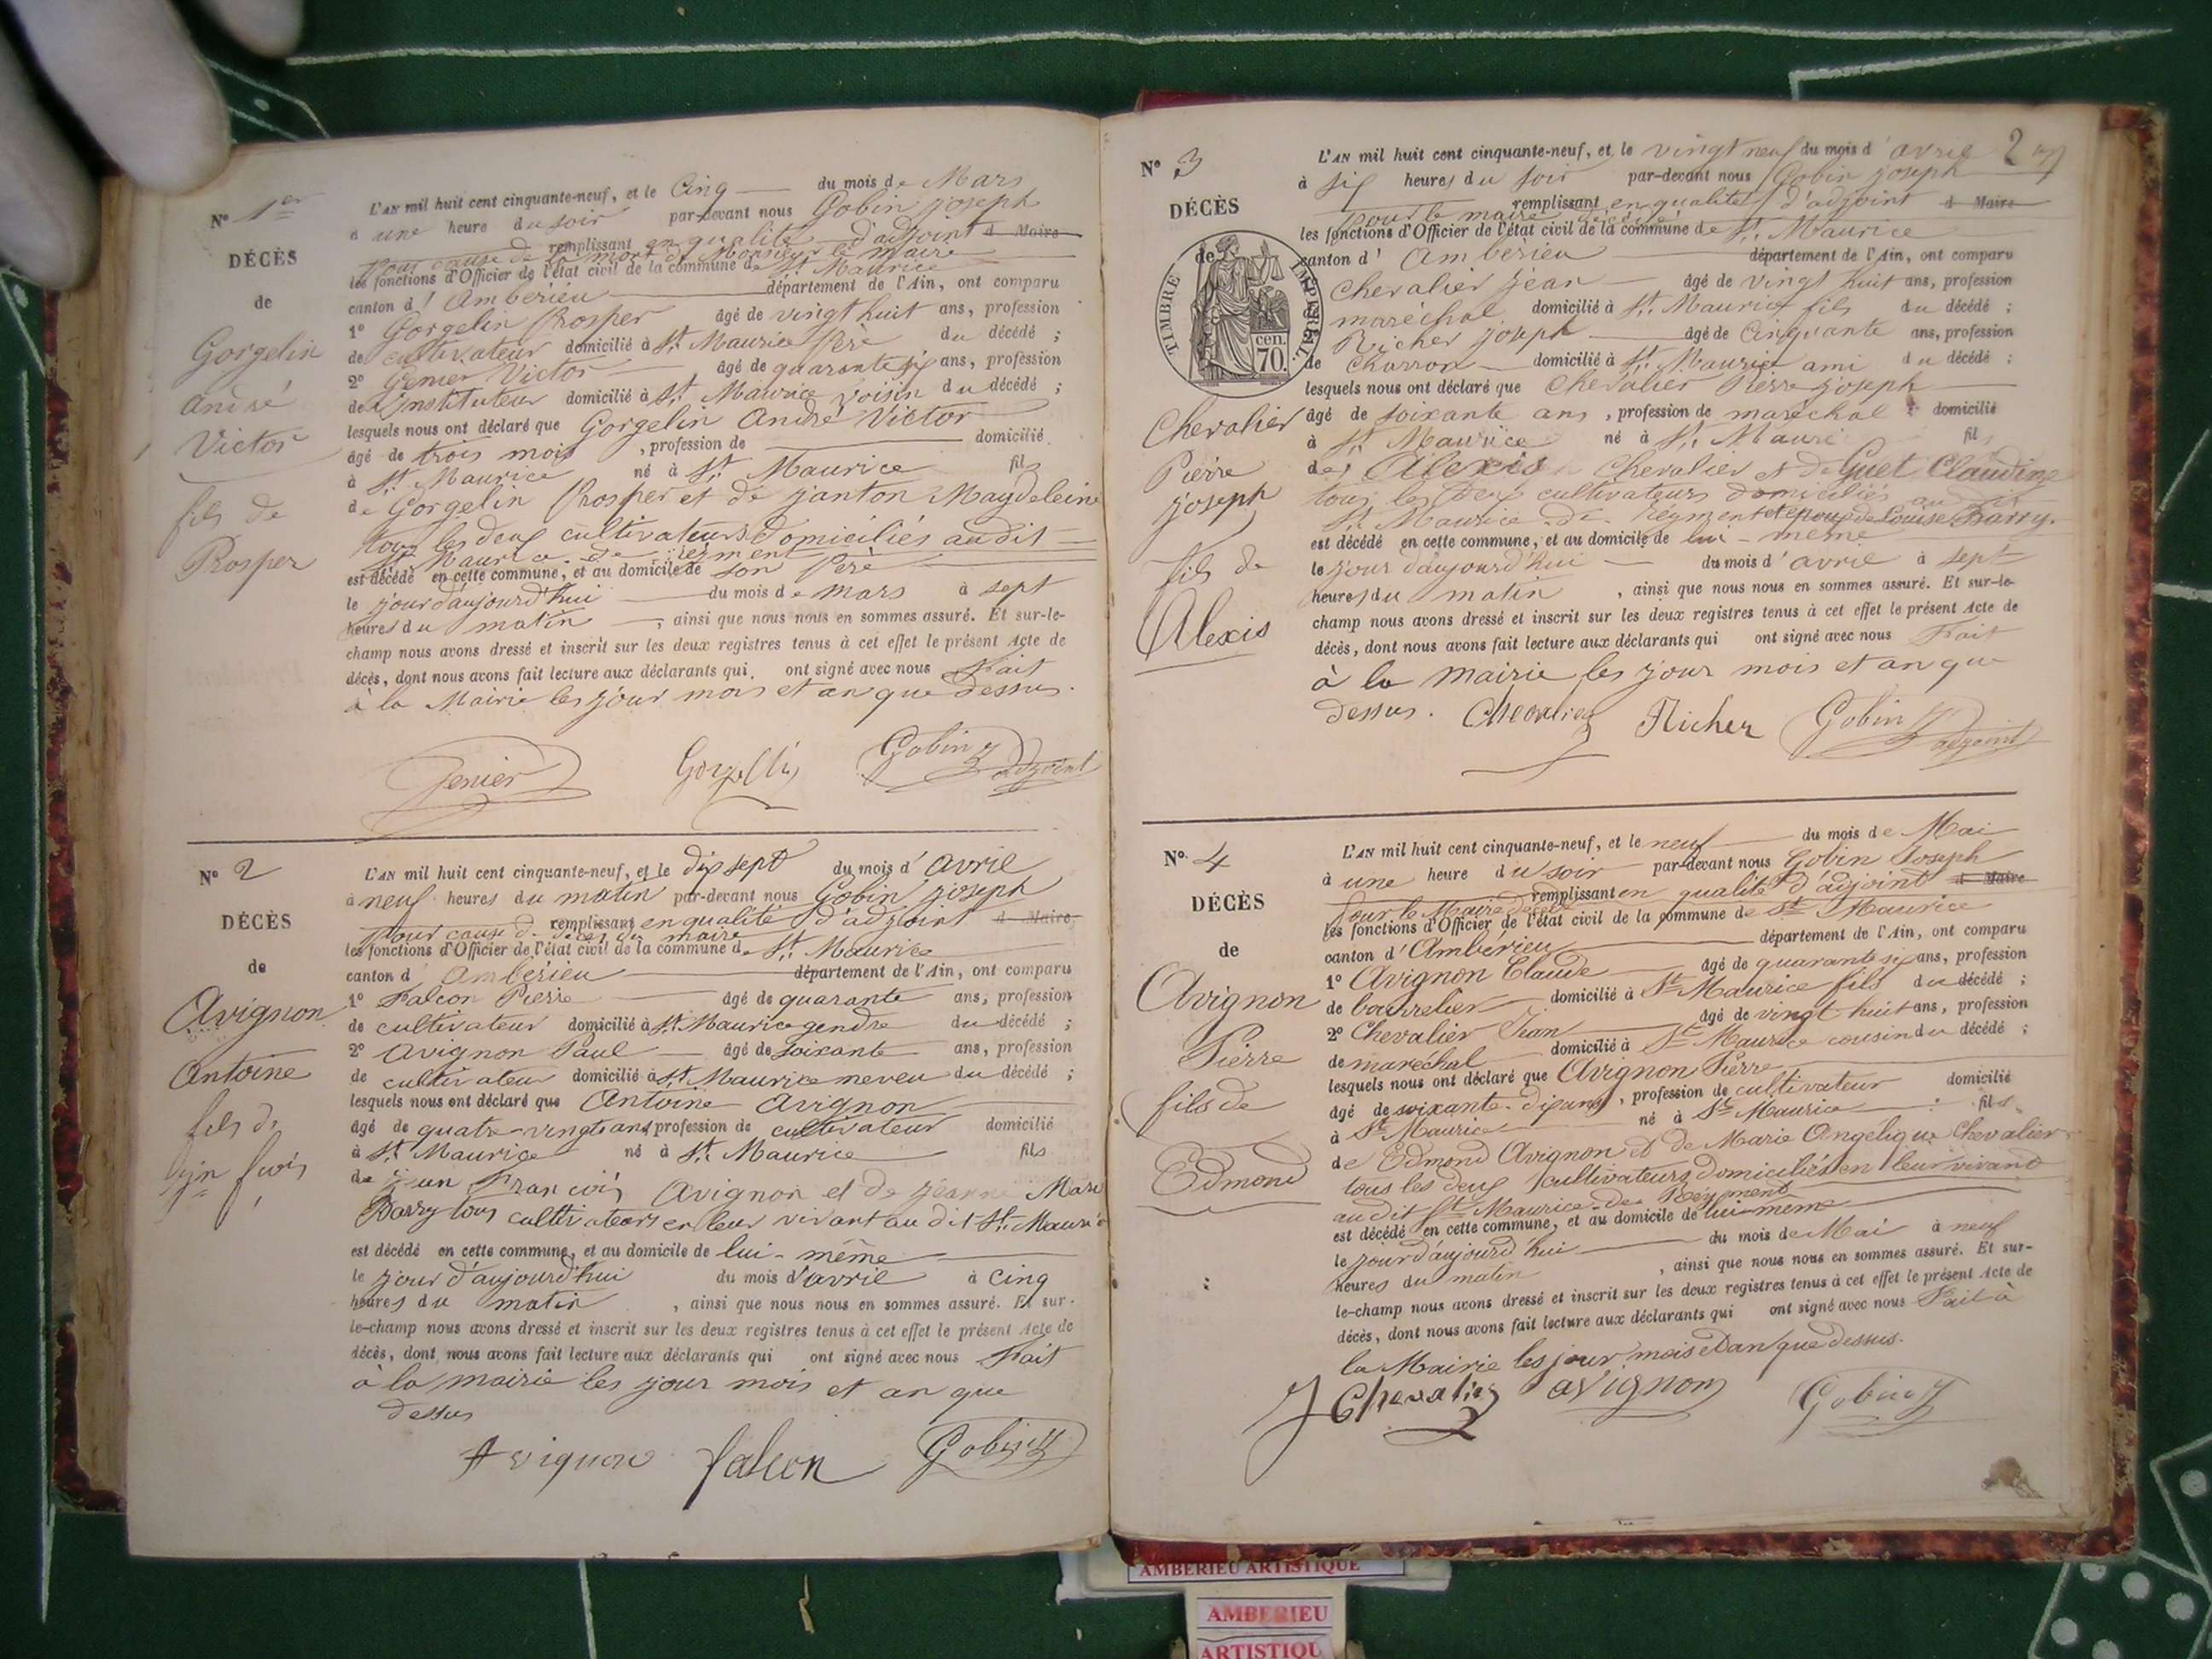 N° 1er
DÉCÈS
de
Gorgelin
André
Victor
fils de
Prosper
L'AN mil huit cent cinquante-neuf, et le Cinq du mois de Mars
à une heure du soir par-devant nous Gobin Joseph
remplissant en qualité d'adjoint d Maire
pour cause de la mort de Monsieur le maire
les fonctions d'Officier de l'état civil de la commune de St Maurice
canton d'Ambérieu département de l'Ain, ont comparu
1° Gorgelin Prosper âgé de vingt huit ans, profession
de cultivateur domicilié à St Maurice père du décédé ;
2° Genier Victor âgé de quarante six ans, profession
de Instituteur domicilié à St Maurice voisin du décédé ;
lesquels nous ont déclaré que Gorgelin André Victor
âgé de trois mois , profession de domicilié
à St Maurice né à St Maurice fils
de Gorgelin Prosper et de Janton Magdeleine
tous les deux cultivateurs domiciliés audit
St Maurice de régment
est décédé en cette commune, et au domicile de son père
le jour d'aujourd'hui du mois de mars à sept
heures du matin , ainsi que nous nous en sommes assuré. Et sur-le-
champ nous avons dressé et inscrit sur les deux registres tenus à cet effet le présent Acte de
décès, dont nous avons fait lecture aux déclarants qui ont signé avec nous Fait
à la Mairie les jour mois et an que dessus.
Genier Gorgelin Gobin J adjoint
N° 2
DÉCÈS
de
Avignon
Antoine
fils de
L'AN mil huit cent cinquante-neuf, et le dix sept du mois d'avril
à neuf heures du matin par-devant nous Gobin Joseph
remplissant en qualité d'adjoint d Maire
pour cause de décès du maire
les fonctions d'Officier de l'état civil de la commune de St Maurice
canton d Ambérieu département de l'Ain, ont comparu
1° Falcon Pierre âgé de quarante ans, profession
de cultivateur domicilié à St Maurice gendre du décédé ;
2° Avignon Paul âgé de soixante ans, profession
de cultivateur domicilié à St Maurice neveu du décédé ;
lesquels nous ont déclaré que Antoine Avignon
âgé de quatre-vingts ans profession de cultivateur domicilié
à St Maurice né à St Maurice fils
de Jean François Avignon et de Jeanne Marie
Barry tous cultivateurs en leur vivant au dit St Maurice
est décédé en cette commune, et au domicile de lui-même
le jour d'aujourd'hui du mois d'avril à cinq
heures du matin , ainsi que nous nous en sommes assuré. Et sur-
le-champ nous avons dressé et inscrit sur les deux registres tenus à cet effet le présent Acte de
décès, dont nous avons fait lecture aux déclarants qui ont signé avec nous Fait
à la mairie les jour mois et an que
dessus
Avignon falcon Gobin J
2
N° 3
DÉCÈS
de
TIMBRE IMPÉRIAL
cen.
70.
Chevalier
Pierre
Joseph
fils de
Alexis
L'AN mil huit cent cinquante-neuf, et le vingt neuf du mois d'avril
à six heures du soir par-devant nous Gobin Joseph
remplissant en qualité d'adjoint d Maire
pour le maire décédé
les fonctions d'Officier de l'état civil de la commune de St Maurice
canton d' Ambérieu département de l'Ain, ont comparu
Chevalier Jean âgé de vingt huit ans, profession
maréchal domicilié à St Maurice fils du décédé ;
Richer Joseph âgé de Cinquante ans, profession
de Charron domicilié à St Maurice ami du décédé ;
lesquels nous ont déclaré que Chevalier Pierre Joseph
âgé de soixante ans , profession de maréchal domicilié
à St Maurice né à St Mauri fils
de Alexis Chevalier et de Guet Claudine
tous les deux cultivateurs domiciliés au dit
St Maurice de régment et époux de Louise Barry.
est décédé en cette commune, et au domicile de lui-même
le jour d'aujourd'hui du mois d'avril à sept
heures du matin , ainsi que nous nous en sommes assuré. Et sur-le-
champ nous avons dressé et inscrit sur les deux registres tenus à cet effet le présent Acte de
décès, dont nous avons fait lecture aux déclarants qui ont signé avec nous Fait
à la mairie les jour mois et an que
dessus. Chevalier Richer Gobin J adjoint
N° 4
DÉCÈS
de
Avignon
Pierre
fils de
Edmond
L'AN mil huit cent cinquante-neuf, et le neuf du mois de Mai
à une heure du soir par-devant nous Gobin Joseph
remplissant en qualité d'adjoint d Maire
pour le Maire décédé
les fonctions d'Officier de l'état civil de la commune de St Maurice
canton d'Ambérieu département de l'Ain, ont comparu
1° Avignon Claude âgé de quarante six ans, profession
de bourrelier domicilié à St Maurice fils du décédé ;
2° Chevalier Jean âgé de vingt huit ans, profession
de maréchal domicilié à St Maurice cousin du décédé ;
lesquels nous ont déclaré que Avignon Pierre
âgé de soixante-dix ans , profession de cultivateur domicilié
à St Maurice né à St Maurice fils
de Edmond Avignon et de Marie Angelique Chevalier
tous les deux cultivateurs domiciliés en leur vivant
au dit St Maurice-de-Régment
est décédé en cette commune, et au domicile de lui-même
le jour d'aujourd'hui du mois de Mai à neuf
heures du matin , ainsi que nous nous en sommes assuré. Et sur-
le-champ nous avons dressé et inscrit sur les deux registres tenus à cet effet le présent Acte de
décès, dont nous avons fait lecture aux déclarants qui ont signé avec nous Fait à
la Mairie les jour mois et an que dessus.
J Chevalier avignon Gobin J
AMBERIEU ARTISTIQUE
AMBERIEU
ARTISTIQU